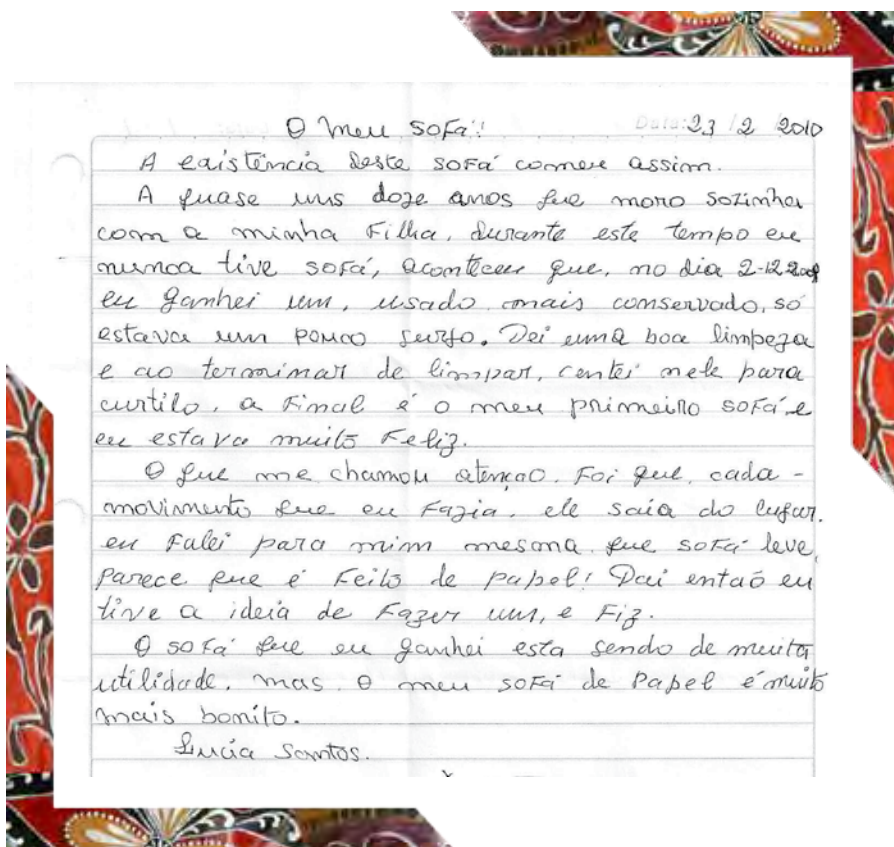 O meu sofá!
Data: 23/2/2010
A existência deste sofá comeu assim.
A quase uns doze anos que moro sozinha
com a minha Filha, durante este tempo eu
nunca tive sofá, aconteceu que, no dia 2-12-2009
eu ganhei um, usado mais conservado, só
estava um pouco surjo. Dei uma boa limpeza
e ao terminar de limpar, centei nele para
curtilo, a Final é o meu primeiro sofá e
eu estava muito Feliz.
O que me chamou atençao. Foi que, cada -
movimento que eu Fazia, ele saia do lugar.
eu Falei para mim mesma que sofá leve,
Parece que é Feito de papel! Dai entaõ eu
tive a ideia de Fazer um, e Fiz.
O sofá que eu ganhei esta sendo de muita
utilidade. mas o meu sofá de Papel é muito
mais bonito.
Lucia Santos.